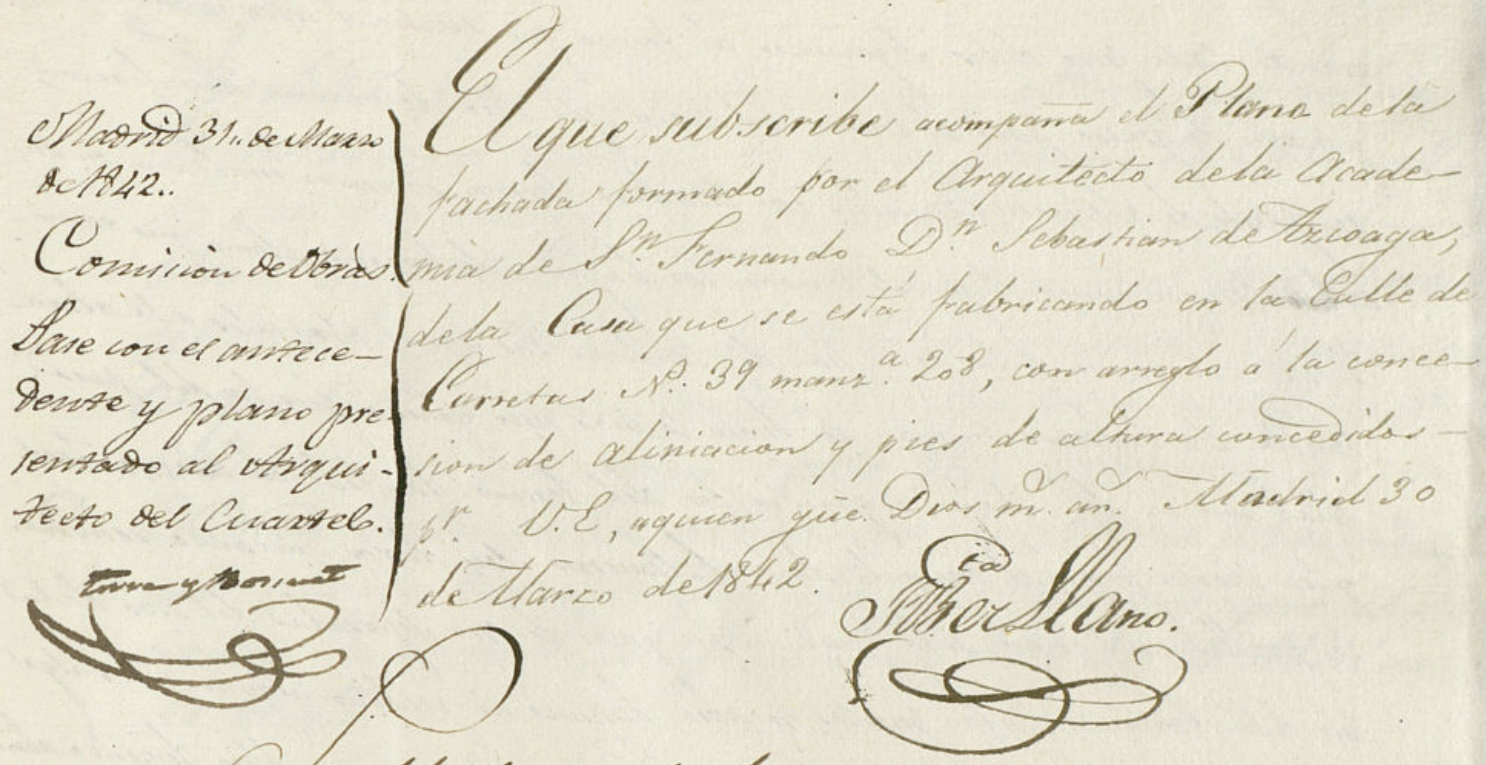 Madrid 31,, de Marzo
de 1842..
Comision de Obras.
Pase con el antece-
dente y plano pre-
sentado al Arqui-
tecto del Cuartel.
El que subscribe acompaña el Plano dela
fachada formado por el Arquitecto dela Acade-
mia de Sn. Fernando Dn Sebastian de
dela Casa que se está fabricando en la Calle de
Carretas No. 39 manz.a 208, con arreglo á la conce-
sion de aliniacion y pies de altura concedidos
pr. V.E, aquien güe. Dios ms. an. Madrid 30
de Marzo de 1842.
Llano.